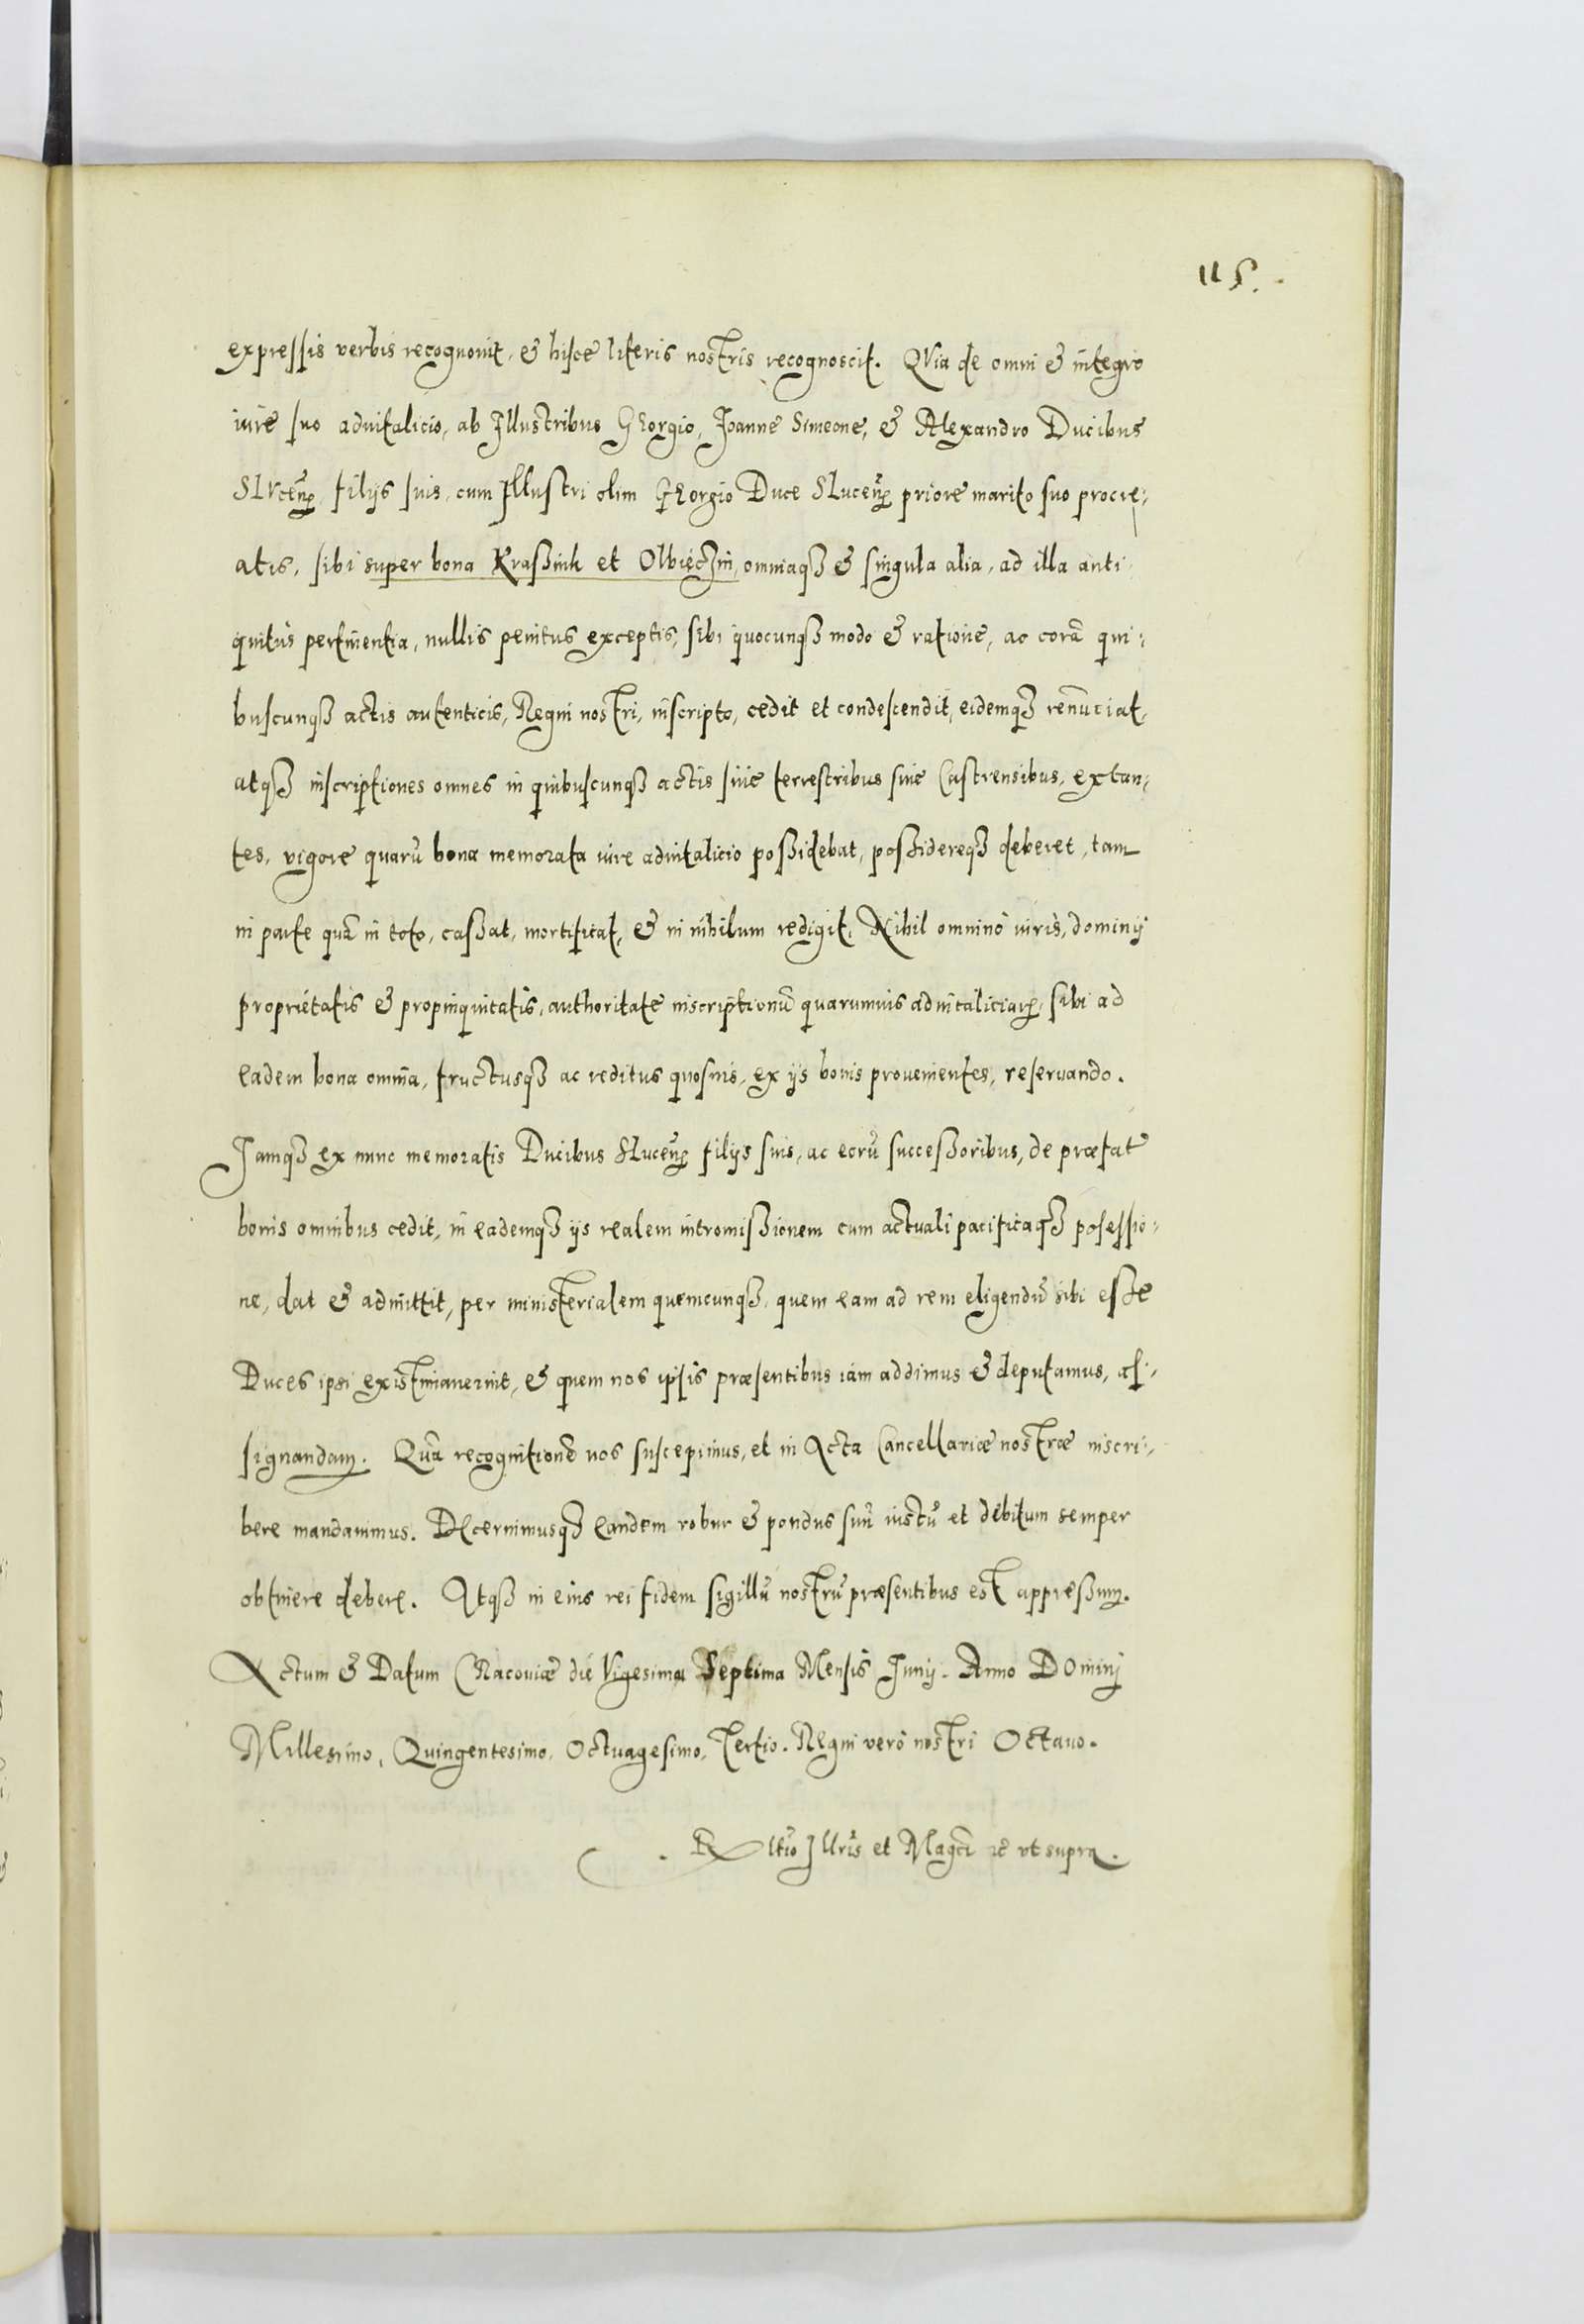 115.
expressis verbis recognouit, & hisce literis nostris recognoscit. QVia de omni & integro
iure suo aduitalicio, ab Illustribus GEorgio, Joanne Simeone, & Alexandro Ducibus
SLVceñ filijs suis, cum Illustri olim GEorgio Duce Sluceñ priore marito suo procre-
atis, sibi super bona Kraßink et Olbięczin, omniaqȝ & singula alia, ad illa anti-
quitus pertinentia, nullis penitus exceptis, sibi quocunqȝ modo & ratione, ac corã qui-
buscunqȝ actis autenticis, Regni nostri, inscripto, cedit et condescendit, eidemqȝ renũciat,
atqȝ inscriptiones omnes in quibuscunqȝ actis siue terrestribus siue Castrensibus, extan-
tes, vigore quarũ bona memorata iure aduitalicio poßidebat, poßidereqȝ deberet, tam
in parte quã in toto, caßat, mortificat, & in nihilum redigit, Nihil omninò iuris, dominij
proprietatis & propinquitatis, authoritate inscriptionũ quarumuis aduitaliciarꝝ, sibi ad
eadem bona omnia, fructusqȝ ac reditus quosuis, ex ijs bonis prouenientes, reseruando.
Jamqȝ ex nunc memoratis Ducibus Sluceñ filijs suis, ac eorũ succeßoribus, de præfat
bonis omnibus cedit, in eademqȝ ijs realem intromißionem cum actuali pacificaqȝ posessio-
ne, dat & admittit, per ministerialem quemcunqȝ, quem eam ad rem eligendũ sibi eße
Duces ipsi existimauerint, & quem nos ipsis præsentibus iam addimus & deputamus, as-
signandam. Quã recognitionẽ nos suscepimus, et in Acta Cancellariæ nostræ inscri-
bere mandauimus. DEcernimusqȝ eandem robur & pondus suũ iustũ et debitum semper
obtinere debere. Atqȝ in eius rei fidem sigillũ nostrũ præsentibus est appreßum.
Actum & Datum CRacouiæ die Vigesima Septima Mensis Junij. Anno DOminj
Millesimo, Quingentesimo, Octuagesimo, Tertio. REgni verò nostri Octauo.
RLtio Jllris et Magci &c vt supra.